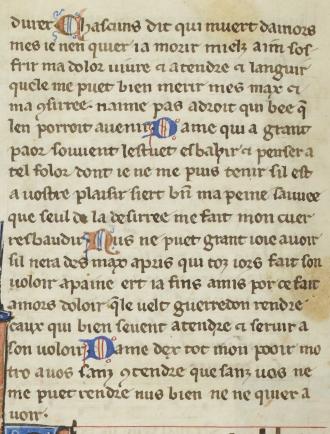 durer Chascuns dit qui muert damors
mes ie nen quier ia morir mielz aim sos
frir ma dolor uiure & atendre & languir
quele me puet bien merir mes max &
ma ꝯsirree. naime pas adroit qui bee q̃
len porroit auenir Dame qui a grant
paor souuent lestuet esbahir & penser a
tel folor dont ie ne me puis tenir sil est
a uostre plaisir siert bn̄ ma peine sauuee
que seul de la desirree me fait mon cuer
resbaudir Nus ne puet grant ioie auoir
sil nera des max apris qui toz iors fait son
uoloir apaine ert ia fins amis por ce fait
amors doloir q̃le uelt guerredon rendre
caux qui bien seuent atendre & seruir a
son uoloir Dame dex tot mon pooir mo
tro a uos sanz ꝯtendre que sanz uos ne
me puet rendre nus bien ne ne quier a
uoir.